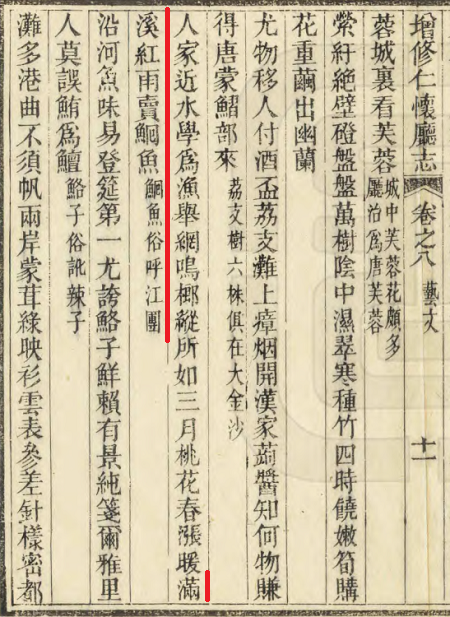 增修仁懷廳志 卷之八 藝文 十一
蓉城裏看芙蓉 城中芙蓉花頗多廳治爲唐芙蓉
縈紆絶壁磴盤盤萬樹陰中濕翠寒種竹四時饒嫩筍購
花重繭出幽蘭
尤物移人付酒盃荔支灘上瘴烟開漢家蒟醬知何物賺
得唐蒙鰼部來 荔支樹六株俱在大金沙
人家近水學爲漁舉網鳴榔縱所如三月桃花春漲暖滿
溪紅雨賣鮦魚 鮦魚俗呼江團
沿河魚味易登筵第一尤誇鮥子鮮賴有景純箋爾雅里
人莫誤鮪爲鱣 鮥子俗訛辣子
灘多港曲不須帆兩岸蒙茸綠映衫雲表參差針樣密都